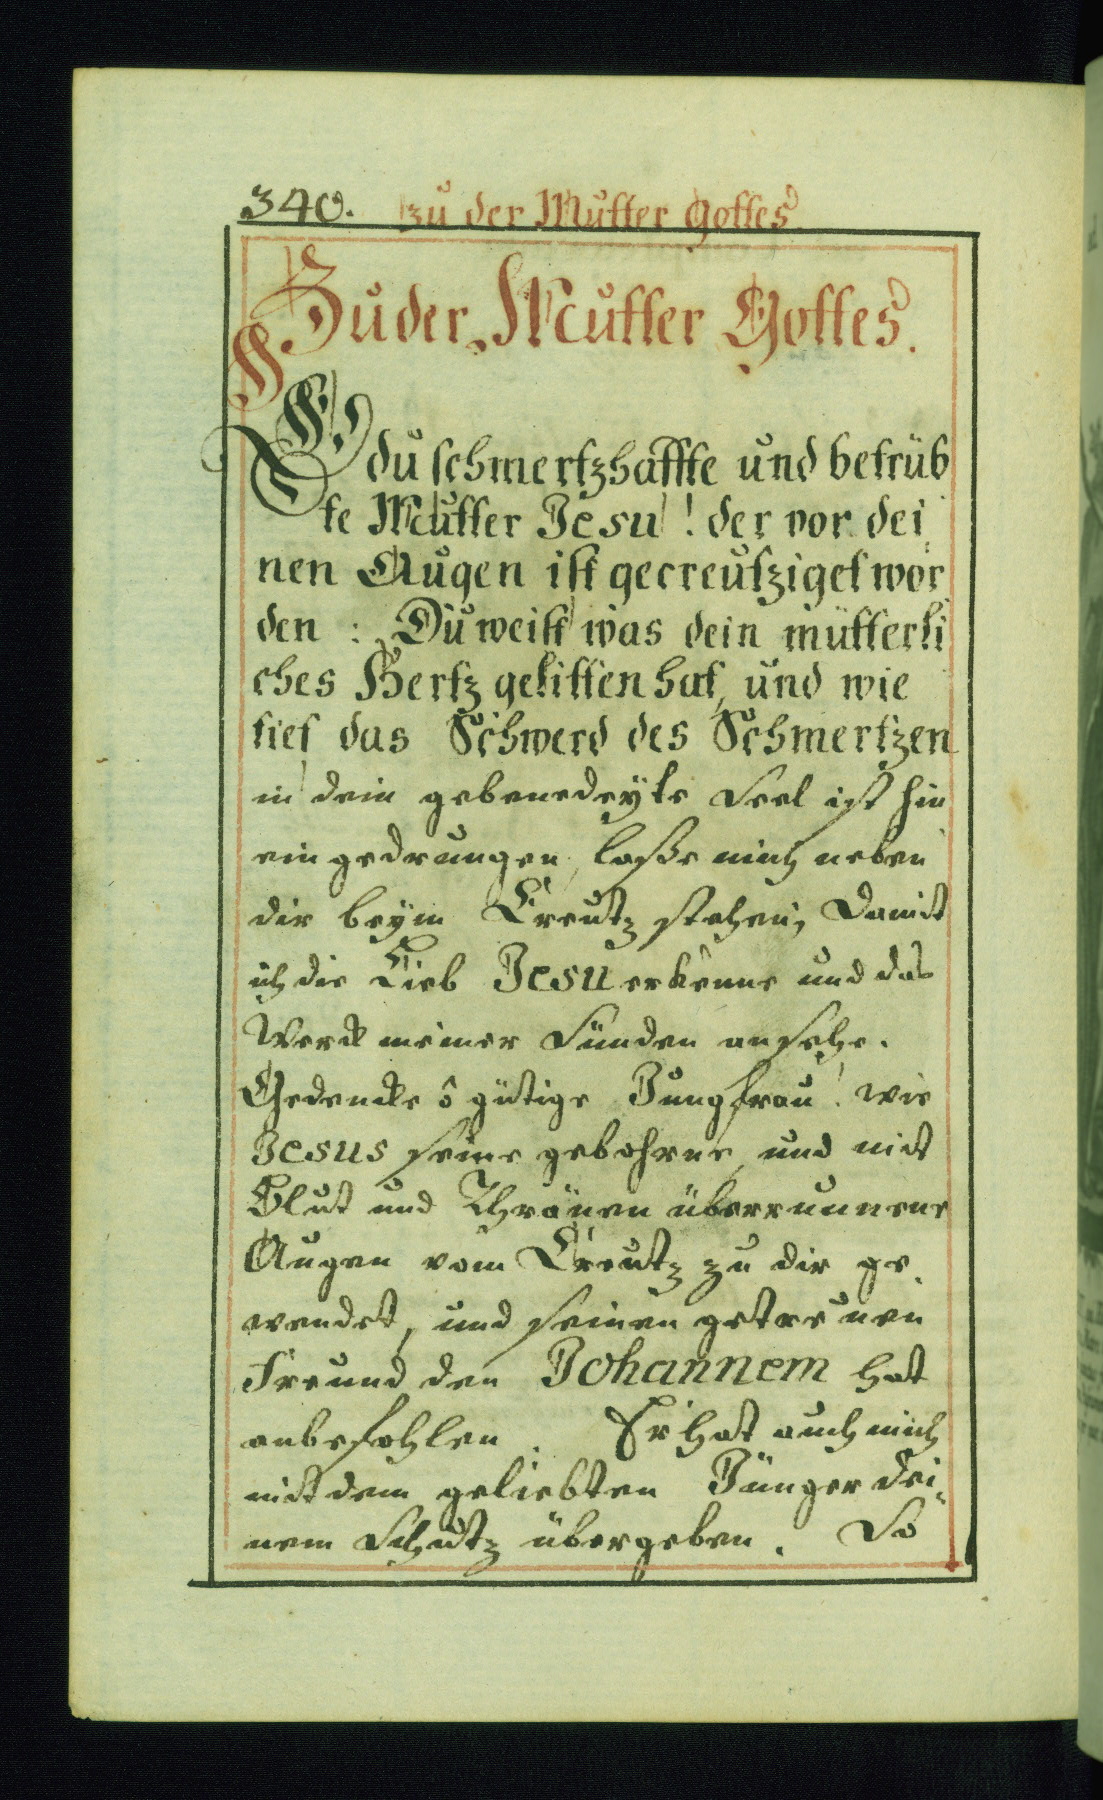 340. zu der Mutter Gottes
Zu der Mutter Gottes.
O du schmertzhaffte und betrüb
te Mutter Jesu! der vor dei
nen Augen ist gecreutziget wor
den: Du weist was dein mütterli
ches Hertz gelitten hat, und wie
tief das Schwerd des Schmertzen
in dein gebenedeyte Seel ist hin
ein gedrungen, lasse mich neben
dir beym Creutz stehen, damit
ich die Lieb Jesu erkenne und das
Werck meiner Sünden ansehe.
Gedencke ô gütige Jungfrau! wie
Jesus seine gebohrne, und mit
Blut und Thränen überrunnene
Augen vom Creutz zu dir ge
wendet, und seinen getreuen
Freund den Johannem hat
anbefohlen. Er hat auch mich
mit dem geliebten Jünger dei„
nem Schutz übergeben. So